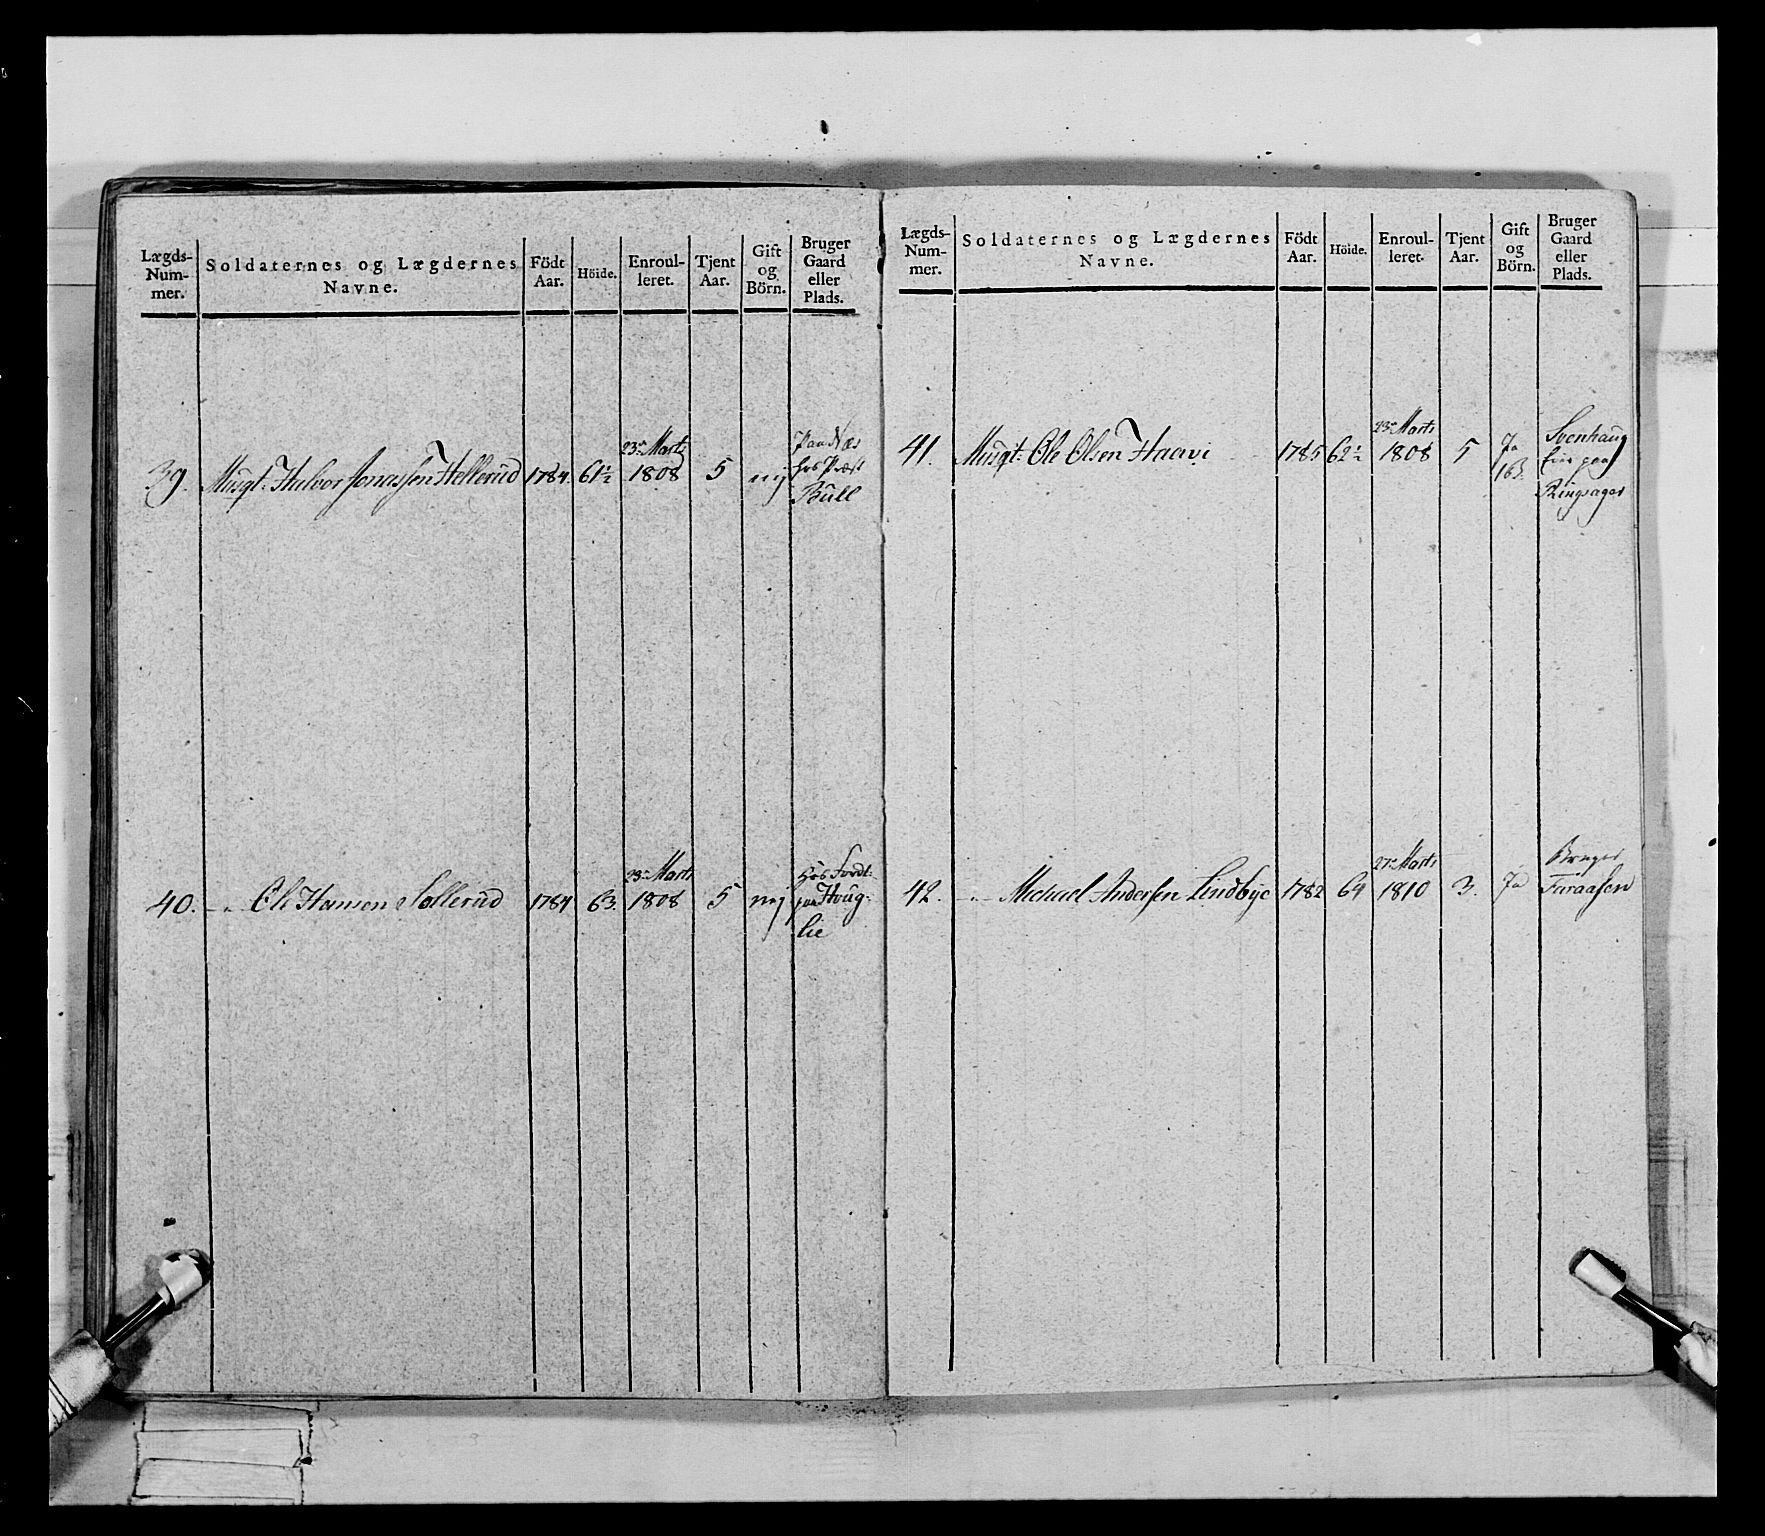 Lægds-Num-mer. Soldaternes og Lægdernes Navne. Födt Aar. Höide. Enroul-leret. Tjent Aar. Gift og Börn. Bruger Gaard eller Plads.
39. Musqt. Halvor Jonassen Hellerud 1784 61½ 23de Marts 1808 5 nej Paa Næs
hos Præst
Bull
40. - " - Ole Hansen Sollerud 1784 63. 23de Marts 1808 5 nej Hos
paa Houg-
lie
Lægds-Num-mer. Soldaternes og Lægdernes Navne. Födt Aar. Höide. Enroul-leret. Tjent Aar. Gift og Börn. Bruger Gaard eller Plads.
41. Musqt. Ole Olsen Haavi 1785 62½ 23de Marts 1808 5 Ja
1 B. Svenhaug
Eier paa
Ringsager
42. - " - Michael Andersen Lindbye 1782 64 27de Marts 1810 3. Ja Bruger
Furaasen